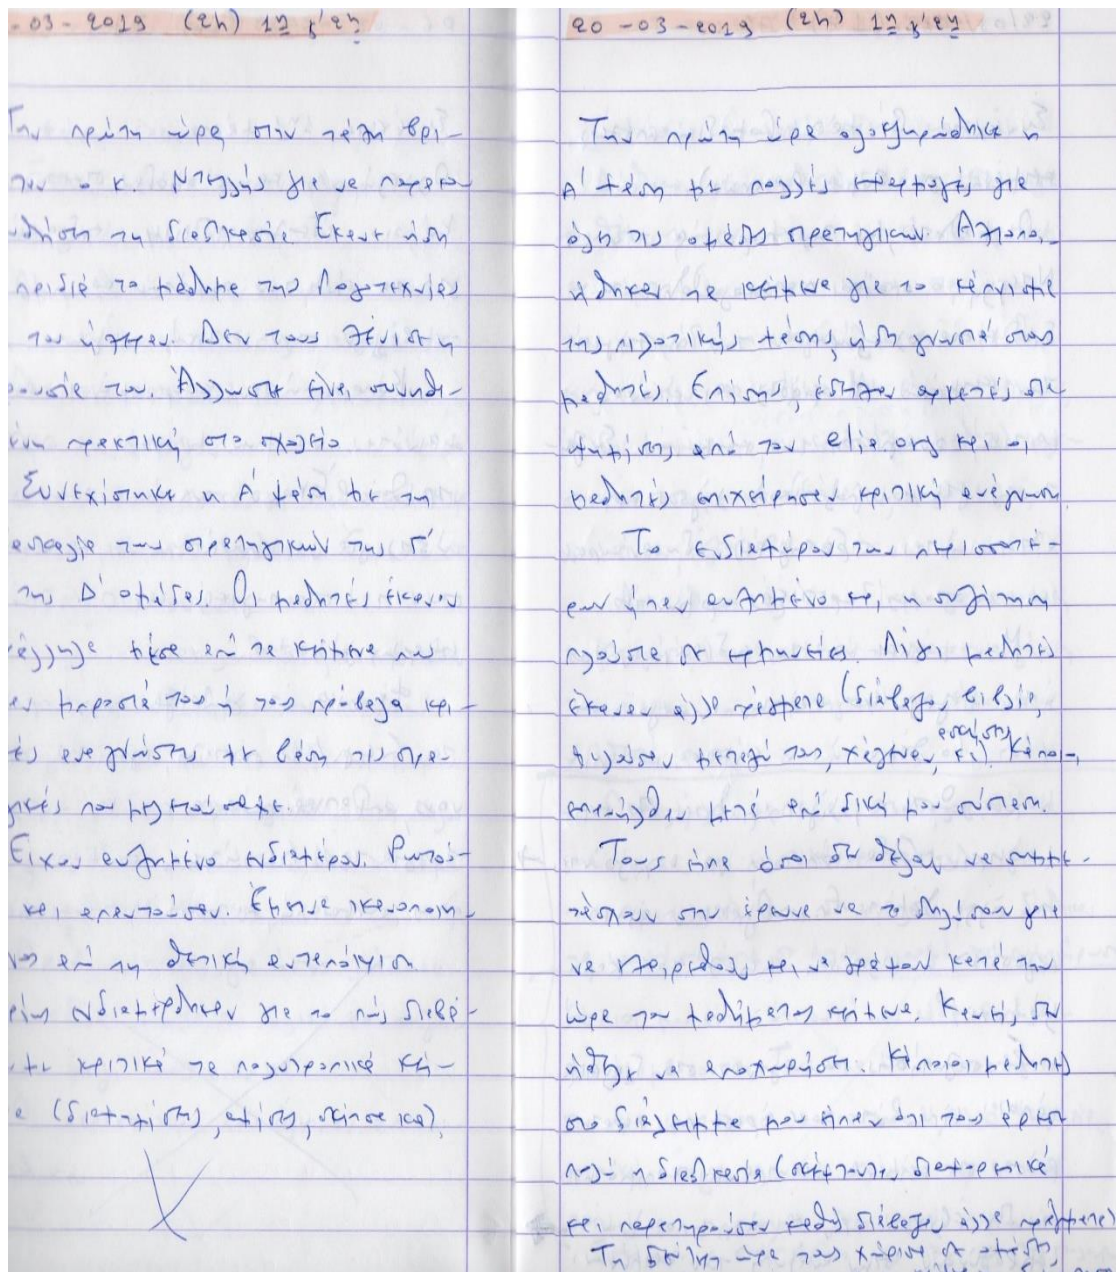 -03-2019 (2h) 1η &'2η
Την πρώτη ώρα στην τάξη βρι-
ταν ο κ. Ντελλής για να παρακο
υθήση τη διαδικασία. Έκαναν ήδη
το μάθημα της Λογοτεχνίας
του ήξεραν. Δεν τους ξένισε η
ουσία του. Άλλωστε είναι συνηθι-
ένη πρακτική στο σχολείο
Συνεχίστηκε η Α' φάση με τη
ασκαλία των στρατηγικών της Γ'
της Δ' ομάδας. Οι μαθητές έκαναν
άλληλα μέσα από τα κείμενα που
αν μπροστά τους ή τους πρόβαλα κρι-
ές αναγνώσεις με βάση τις στρα-
γικές που μελετούσαμε.
Είχαν αυξημένο ενδιαφέρον. Ρωτού-
και απαντούσαν. Έμεινα ικανοποιη-
νος από τη θετική ανταπόκριση
ενδιαφέρθηκαν για το πώς διαβά-
με κριτικά τα πολυτροπικά κεί-
α (διαφημίσεις, αφίσες, σκίτσα κα).
20-03-2019 (2h) 1η &'2η
Την πρώτη ώρα ολοκληρώθηκε η
Α' φάση με πολλές εφαρμογές για
όλη τις ομάδες στρατηγικών. Αξιοποι-
ήθηκαν τα κείμενα για το κάπνισμα
της πιλοτικής φάσης, ήδη γνωστά στους
μαθητές. Επίσης, έδειξαν αρκετές δια
φημίσεις από τον elia.org και οι
μαθητές επιχείρησαν κριτική ανάγνωση.
Το ενδιαφέρον των περισσοτέ-
ρων ήταν αυξημένο και η συζήτηση
πλούσια σε ερμηνείες. Λίγοι μαθητές
έκαναν άλλα πράγματα (διάβαζαν βιβλία,
μιλούσαν μεταξύ τους, χάζευαν, ασκήσεις κ.ά.) Κάποιοι,
επανήλθαν μετά από δική μου σύσταση.
Τους είπα όσοι δεν θέλουν να συμμε-
τάσχουν στην έρευνα να το δηλώσουν για
να εξαιρεθούν και να γράφουν κατά την
ώρα του μαθήματος κείμενα. Κανείς δεν
ήθελε να αποχωρήσει. Κάποιοι μαθητές
στο διάλειμμα μου είπαν ότι τους άρεσε
πολύ η διαδικασία (σκέφτονται διαφορετικά
και παρατηρούσαν καθώς διάβαζαν άλλα πράγματα)
Τη δεύτερη ώρα τους χώρισα σε ομάδες